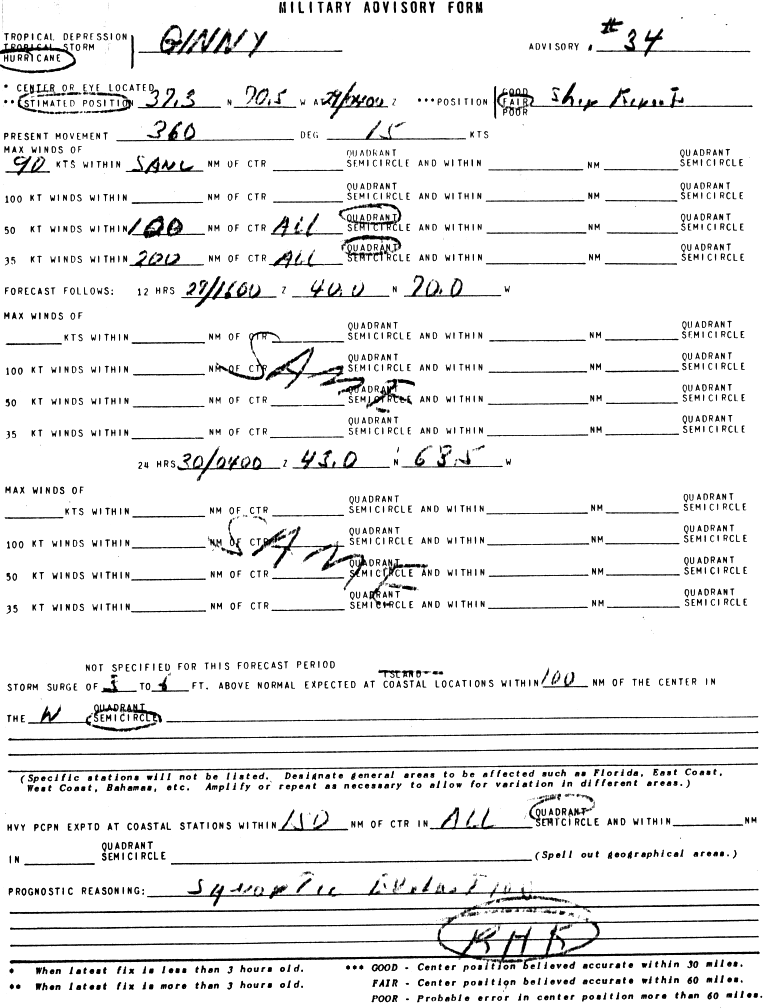 MILITARY ADVISORY FORM
TROPICAL DEPRESSION
TROPICAL STORM GINNY ADVISORY # 34
HURRICANE
* CENTER OR EYE LOCATED
** ESTIMATED POSITION 37.3 N 70.5 W AT 29/0400 Z ***POSITION GOOD FAIR POOR Ship Reports
PRESENT MOVEMENT 360 DEG 15 KTS
MAX WINDS OF QUADRANT QUADRANT
90 KTS WITHIN NM OF CTR SEMICIRCLE AND WITHIN NM SEMICIRCLE
100 KT WINDS WITHIN NM OF CTR QUADRANT SEMICIRCLE AND WITHIN NM QUADRANT SEMICIRCLE
50 KT WINDS WITHIN 100 NM OF CTR ALL QUADRANT SEMICIRCLE AND WITHIN NM QUADRANT SEMICIRCLE
35 KT WINDS WITHIN 200 NM OF CTR ALL QUADRANT SEMICIRCLE AND WITHIN NM QUADRANT SEMICIRCLE
FORECAST FOLLOWS: 12 HRS 29/1600 Z 40.0 N 70.0 W
MAX WINDS OF QUADRANT QUADRANT
KTS WITHIN NM OF CTR SEMICIRCLE AND WITHIN NM SEMICIRCLE
100 KT WINDS WITHIN NM OF CTR QUADRANT SEMICIRCLE AND WITHIN NM QUADRANT SEMICIRCLE
SAME
50 KT WINDS WITHIN NM OF CTR QUADRANT SEMICIRCLE AND WITHIN NM QUADRANT SEMICIRCLE
35 KT WINDS WITHIN NM OF CTR QUADRANT SEMICIRCLE AND WITHIN NM QUADRANT SEMICIRCLE
24 HRS 30/0400 Z 43.0 N 68.5 W
MAX WINDS OF QUADRANT QUADRANT
KTS WITHIN NM OF CTR SEMICIRCLE AND WITHIN NM SEMICIRCLE
100 KT WINDS WITHIN NM OF CTR QUADRANT SEMICIRCLE AND WITHIN NM QUADRANT SEMICIRCLE
SAME
50 KT WINDS WITHIN NM OF CTR QUADRANT SEMICIRCLE AND WITHIN NM QUADRANT SEMICIRCLE
35 KT WINDS WITHIN NM OF CTR QUADRANT SEMICIRCLE AND WITHIN NM QUADRANT SEMICIRCLE
NOT SPECIFIED FOR THIS FORECAST PERIOD
ISLAND
STORM SURGE OF TO FT. ABOVE NORMAL EXPECTED AT COASTAL LOCATIONS WITHIN 100 NM OF THE CENTER IN
THE W QUADRANT SEMICIRCLE
(Specific stations will not be listed. Designate general areas to be affected such as Florida, East Coast,
West Coast, Bahamas, etc. Amplify or repeat as necessary to allow for variation in different areas.)
HVY PCPN EXPTD AT COASTAL STATIONS WITHIN 150 NM OF CTR IN ALL QUADRANT SEMICIRCLE AND WITHIN NM
IN QUADRANT SEMICIRCLE (Spell out geographical areas.)
PROGNOSTIC REASONING: Synoptic
* When latest fix is less than 3 hours old. *** GOOD - Center position believed accurate within 30 miles.
** When latest fix is more than 3 hours old. FAIR - Center position believed accurate within 60 miles.
POOR - Probable error in center position more than 60 miles.